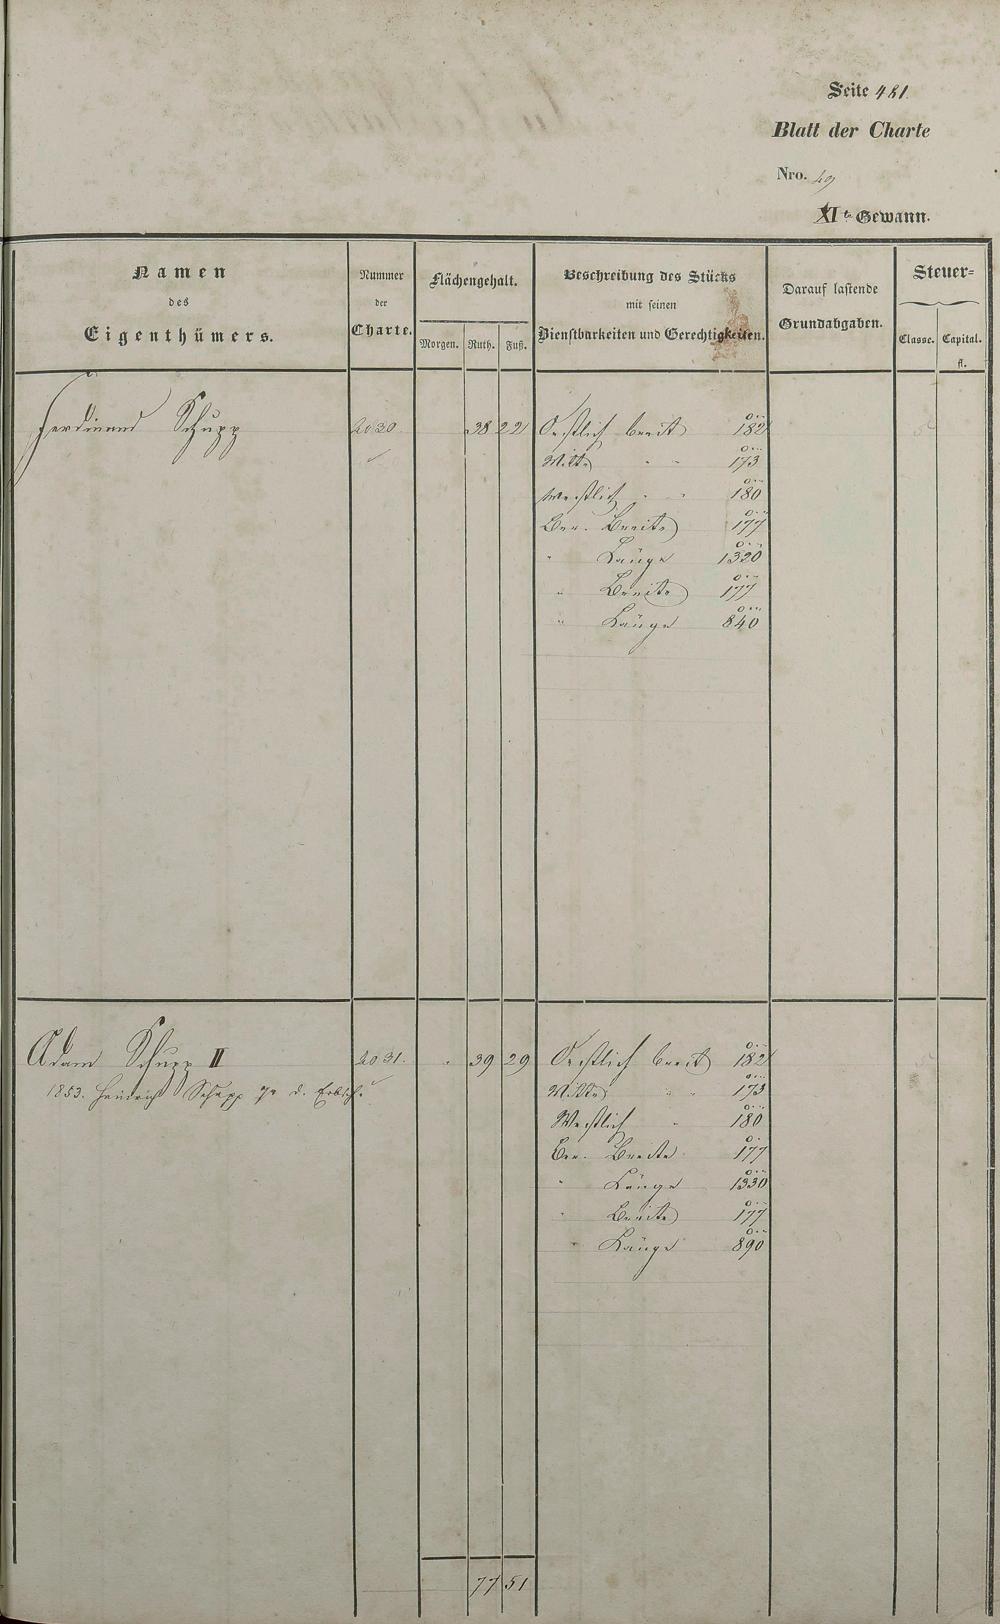 Seite 481.
Blatt der Charte
Nro. 49
XIte Gewann.
Namen des Eigenthümers.
Nummer der Charte.
Flächengehalt.
Morgen. Ruth. Fuß.
Beschreibung des Stücks mit seinen Dienstbarkeiten und Gerechtigkeiten.
Darauf lastende Grundabgaben.
Steuer=
Classe. Capital.
fl.
Ferdinand Schupp 2030 38 22 Oestlich breit 182
Mitte " " 173
Westlich " " 180
Ber. Breite 177
" Länge 1320
" Breite 177
" Länge 840
Adam Schupp II 2031. " 39 29 Oestlich breit 182
1853. Heinrich Schupp d. Erbsch.
Mitte " " 173
Westlich " 180
Ber. Breite 177
" Länge 1330
" Breite 177
" Länge 890
77 51